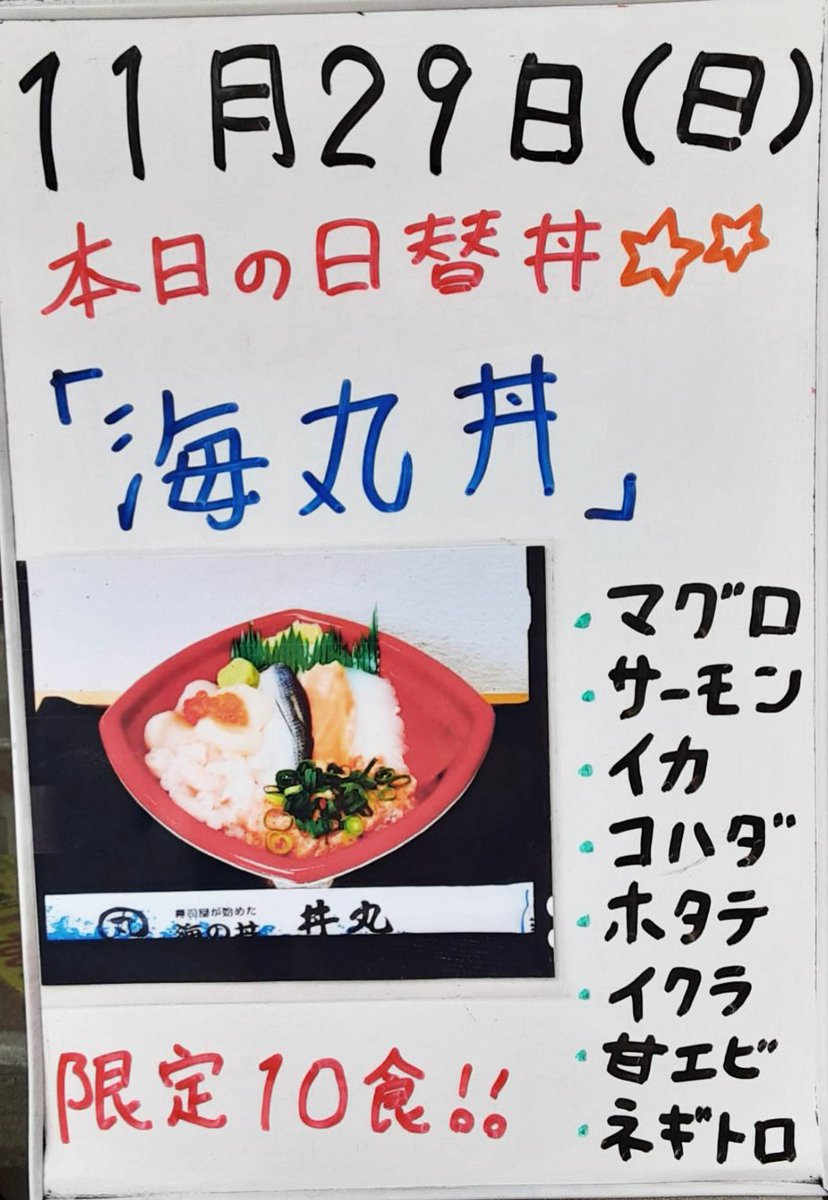 11月29日(日)
本日の日替丼☆☆
「海丸丼」
・マグロ
・サーモン
・イカ
・コハダ
・ホタテ
・イクラ
・甘エビ
・ネギトロ
丸
寿司屋が始めた
海の丼 丼丸
限定10食!!